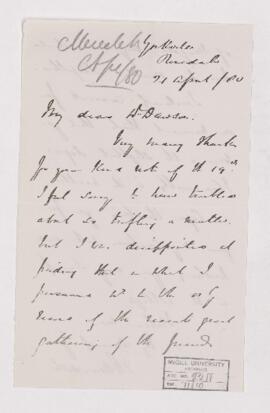 Meredith
Ap/80
Yorkville
Rosedale
21 April /80
My dear Dr Dawson
Very many thanks
for your kind note of the 19th
I feel sorry to have troubled
about so trifling a matter.
but I was disappointed at
finding that in what I
presume wd be the only
of the recent great
gathering of the friends
McGILL UNIVERSITY
ARCHIVES
ACC. NO.
REF.